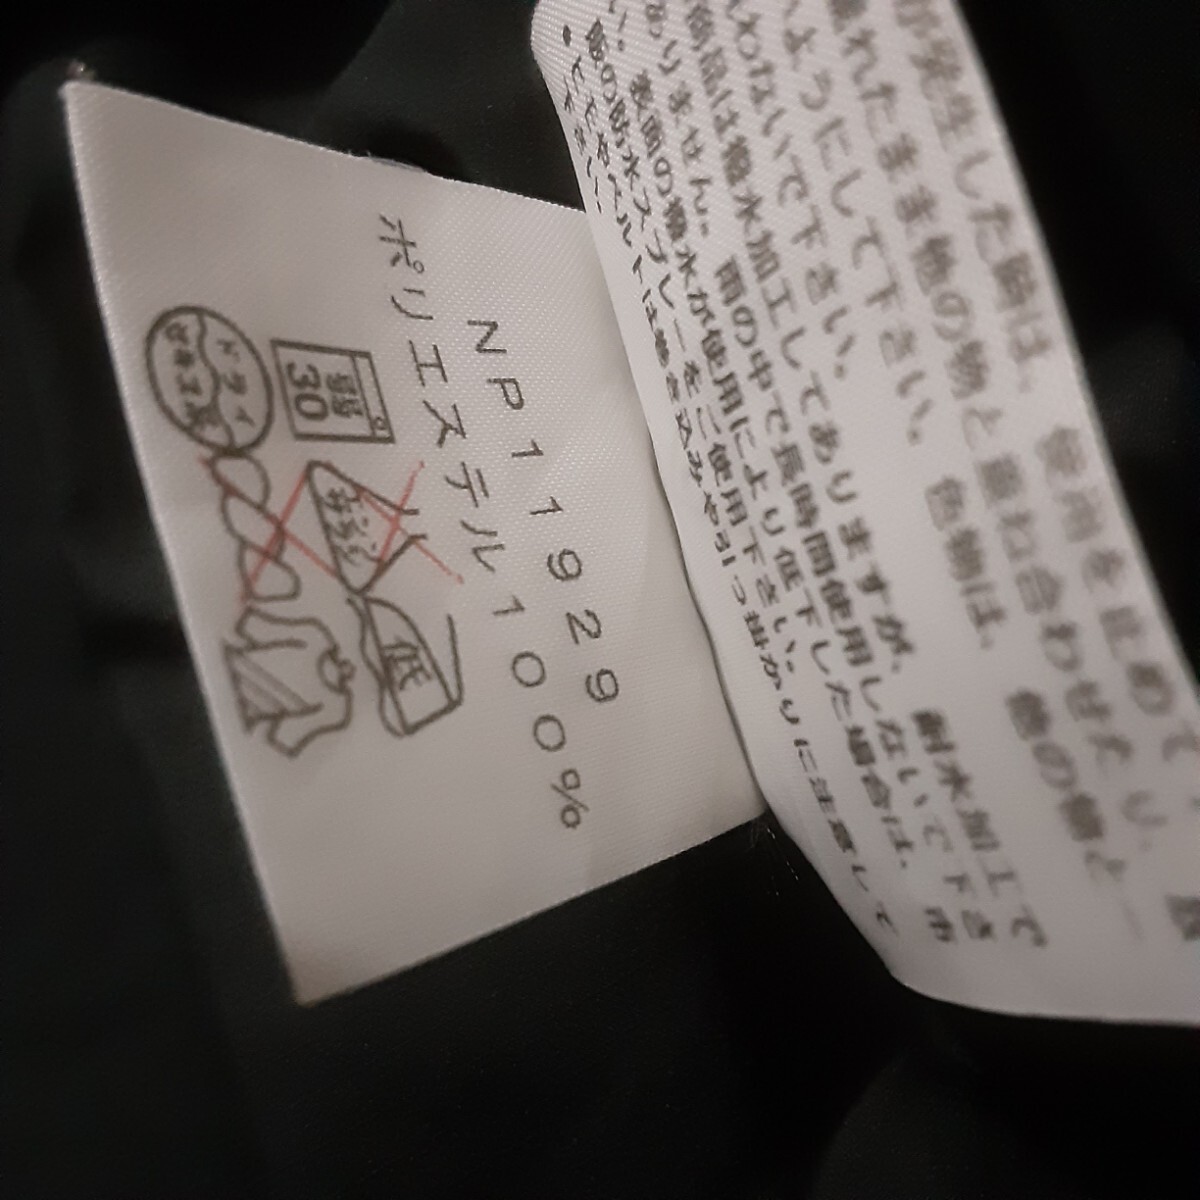 NP11929
ポリエステル100%
30
エンソサラシ
低
ドライ
セキユ系
が発生した時は、使用を止めて
濡れたまま他の物と重ね合わせたり、
いようにして下さい。色物は、他の物と
わないで下さい。
品は撥水加工してありますが、耐水加工で
ありません。雨の中で長時間使用しないで下さ
い。表面の撥水が使用により低下した場合は、市
販の防水スプレーをご使用下さい。
•ヒモやベルトは巻き込みや引っ掛かりに注意して
下さい。